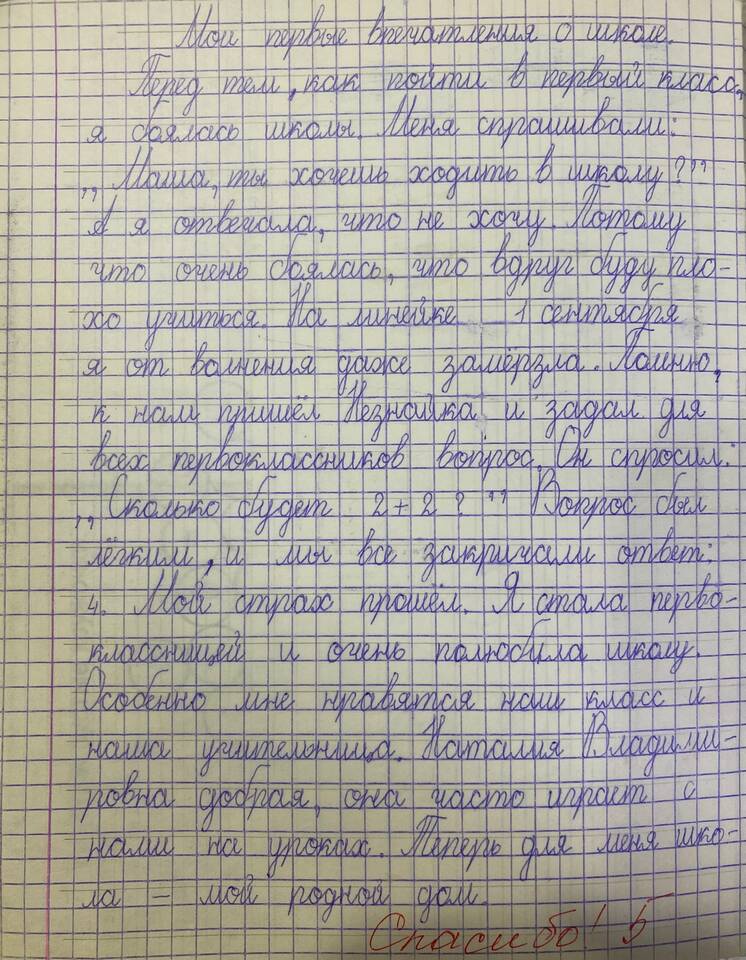 Мои первые впечатления о школе.
Перед тем, как пойти в первый класс,
я боялась школы. Меня спрашивали:
,, Маша, ты хочешь ходить в школу?”
А я отвечала, что не хочу. Потому
что очень боялась, что вдруг буду пло-
хо учиться. На линейке 1 сентября
я от волнения даже замёрзла. Помню,
к нам пришёл Незнайка и задал для
всех первоклассников вопрос. Он спросил:
,, Сколько будет 2+2?” Вопрос был
лёгким, и мы все закричали ответ:
4. Мой страх прошёл. Я стала перво-
классницей и очень полюбила школу.
Особенно мне нравятся наш класс и
наша учительница. Наталия Владими-
ровна добрая, она часто играет с
нами на уроках. Теперь для меня шко-
ла – мой родной дом.
Спасибо! 5